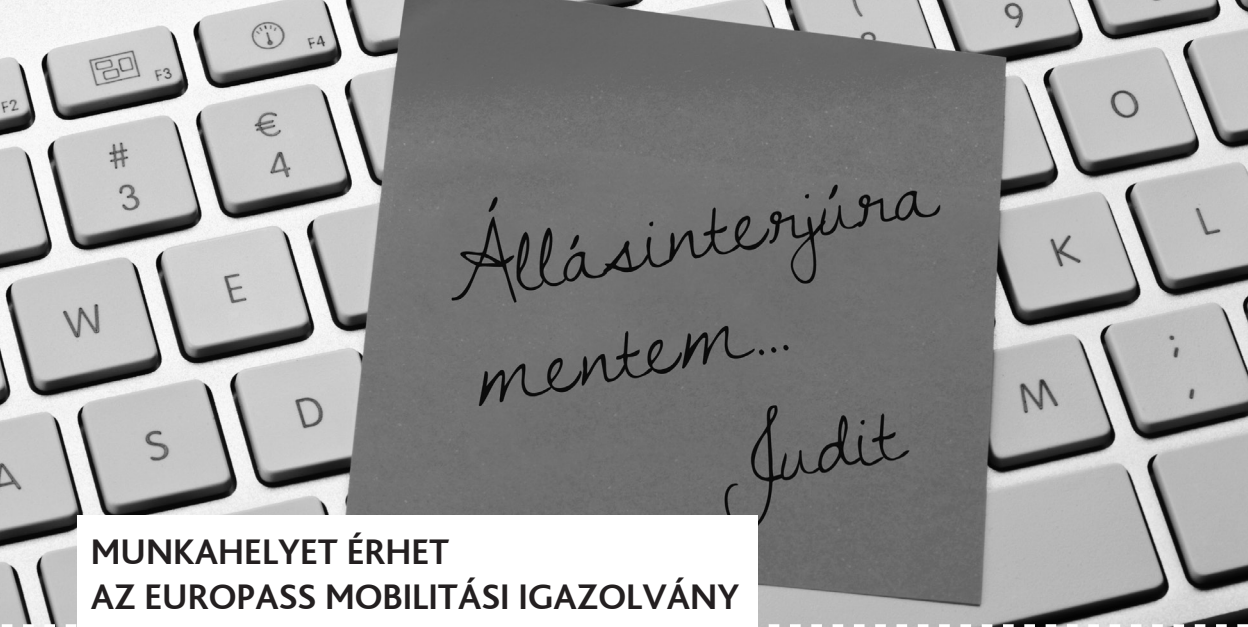 F2
F3
F4
#
3
€
4
9
O
W
E
K
L
A
S
D
M
;
,
Állásinterjúra
mentem...
Judit
MUNKAHELYET ÉRHET
AZ EUROPASS MOBILITÁSI IGAZOLVÁNY